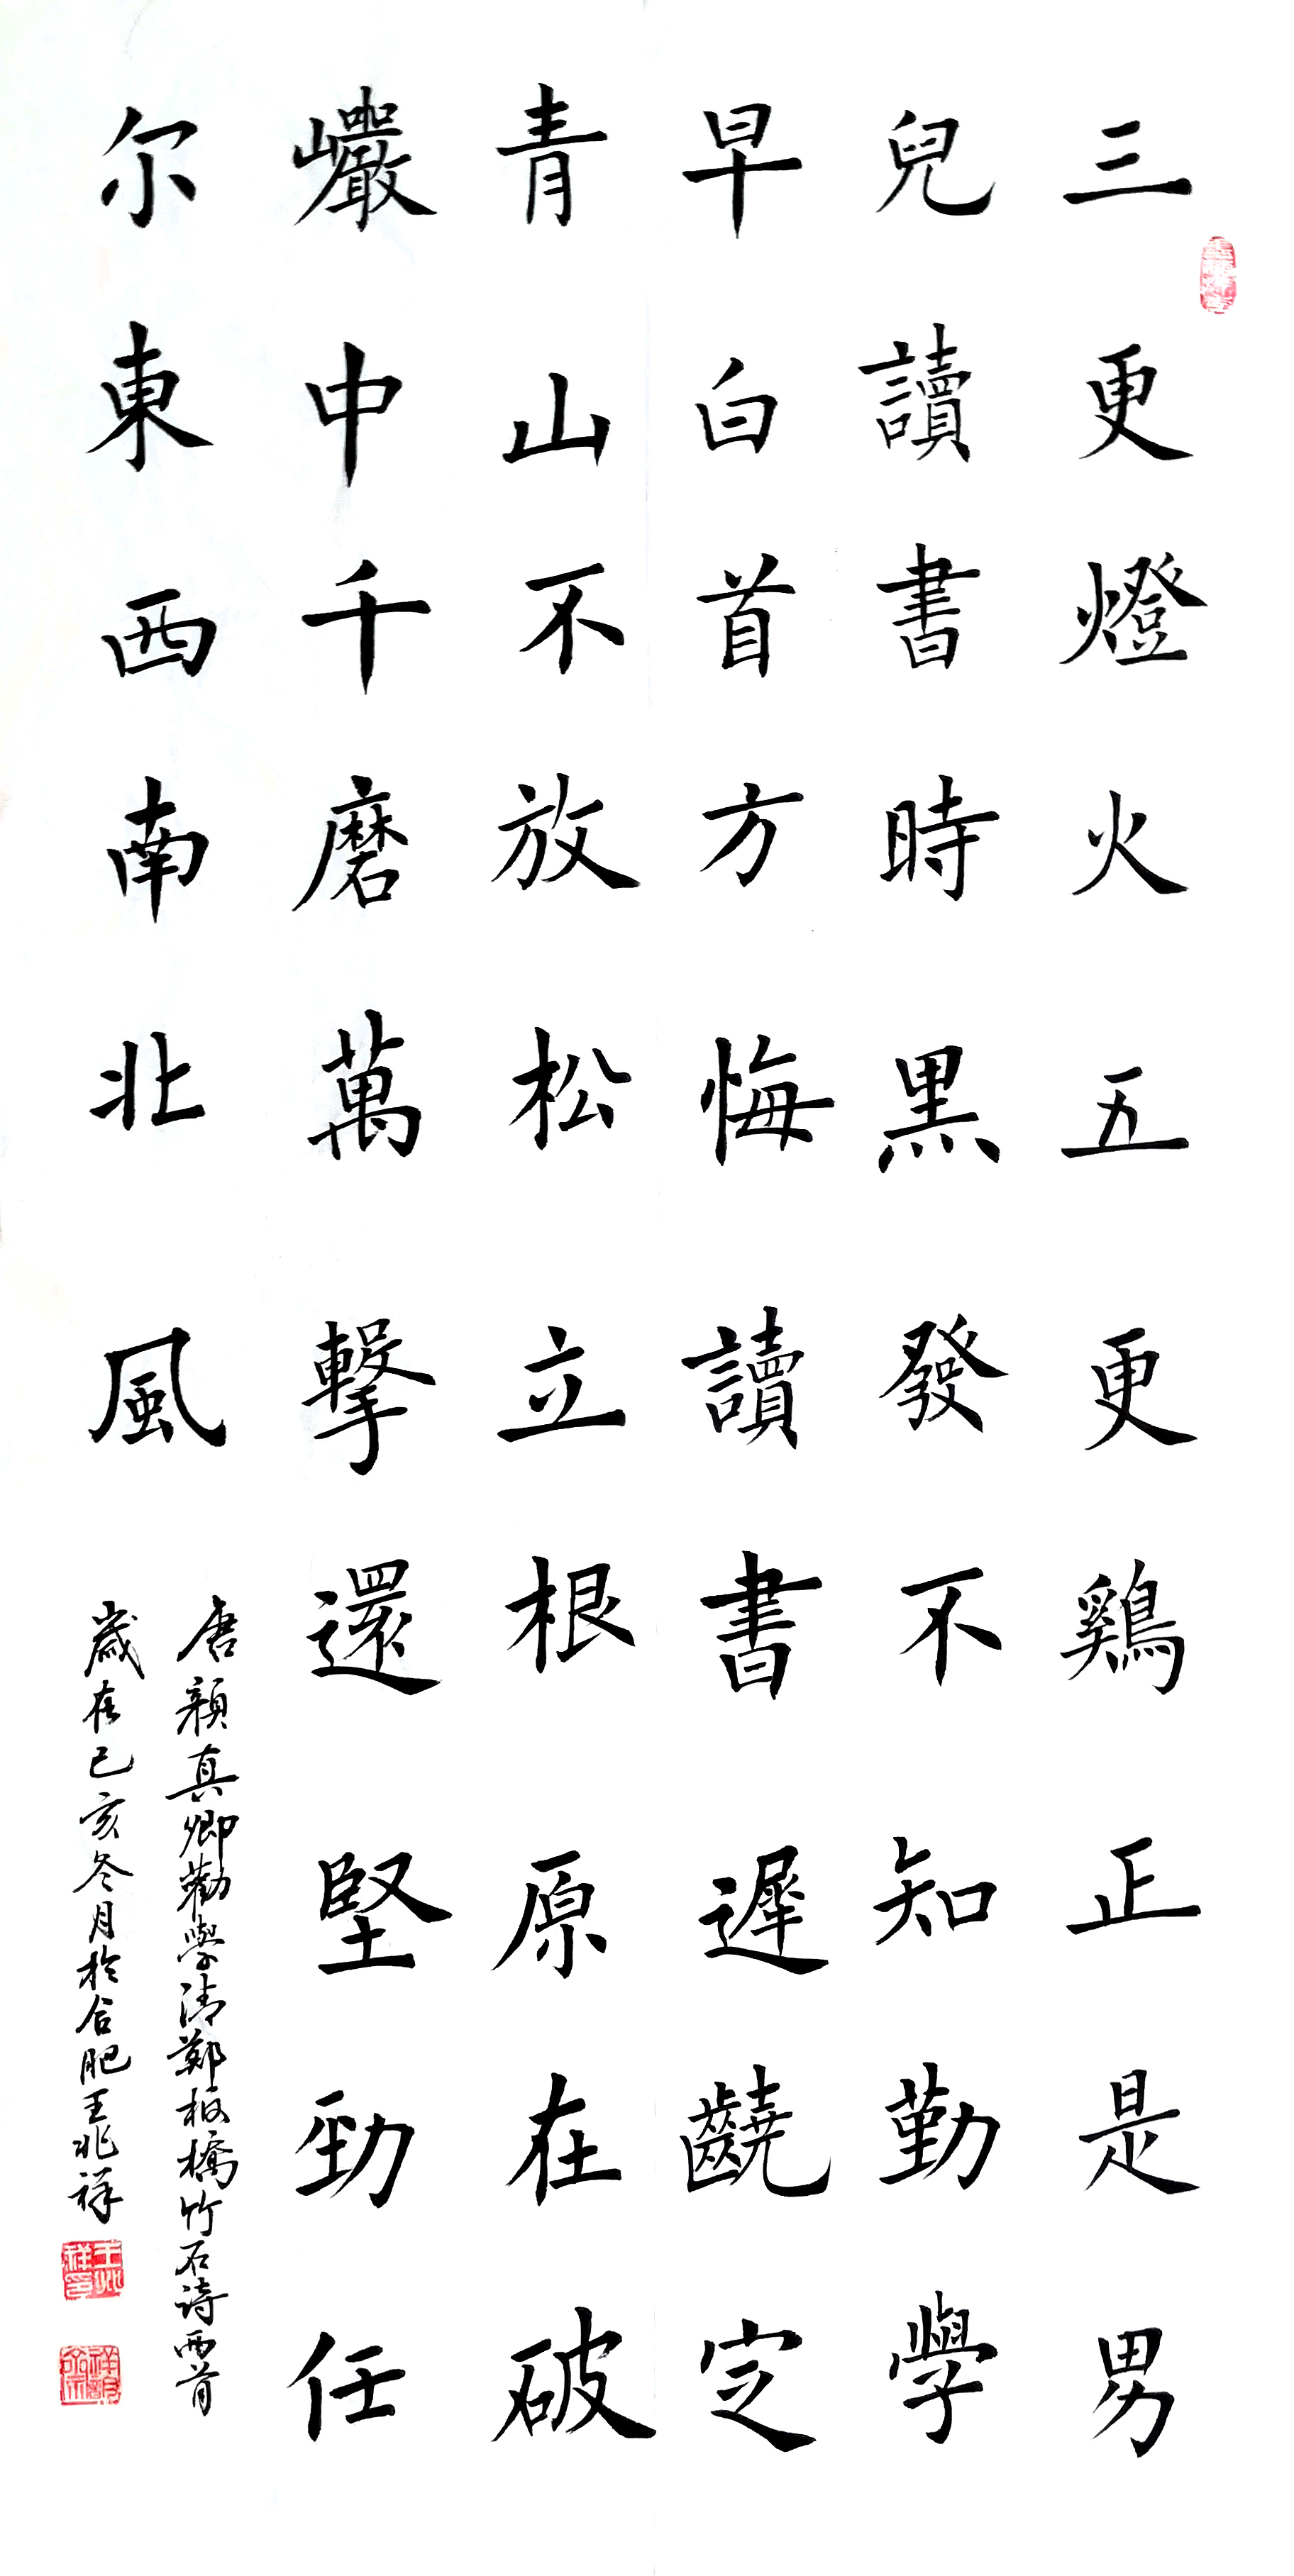 三更燈火五更鷄正是男
兒讀書時黑發不知勤學
早白首方悔讀書遲齩定
青山不放松立根原在破
巖中千磨萬擊還堅勁任
尔東西南北風
唐顏真卿勸學清鄭板橋竹石詩两首
歲在己亥冬月於合肥王兆祥